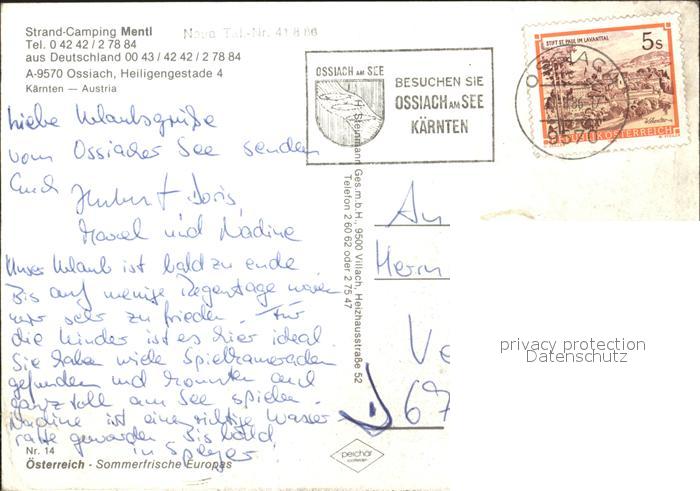 Strand-Camping Mentl
Tel. 0 42 42 / 2 78 84
aus Deutschland 00 43 / 42 42 / 2 78 84
A-9570 Ossiach, Heiligengestade 4
Kärnten — Austria
Neue Tel.-Nr. 41 8 86
OSSIACH AM SEE
BESUCHEN SIE
OSSIACH AM SEE
KÄRNTEN
STIFT ST. PAUL IM LAVANTTAL
5s
REPUBLIK ÖSTERREICH
9570
Liebe Urlaubsgrüße
vom Ossiacher See senden
Euch Hubert Doris,
Marcel und Nadine
Unser Urlaub ist bald zu ende.
Bis auf wenige Regentage waren
wir sehr zu frieden. Für
die Kinder ist es hier ideal.
Sie haben viele Spielkameraden
gefunden und konnten auch
ganz toll am See spielen.
Nadine ist eine richtige Wasser
ratte geworden. Bis bald
in Speyer!
Nr. 14
Österreich - Sommerfrische Europas
Ges.m.b.H., 9500 Villach, Heizhausstraße 52
Telefon 2 60 62 oder 2 75 47
An
Herrn
Ve
D 67
peichär
privacy protection
Datenschutz